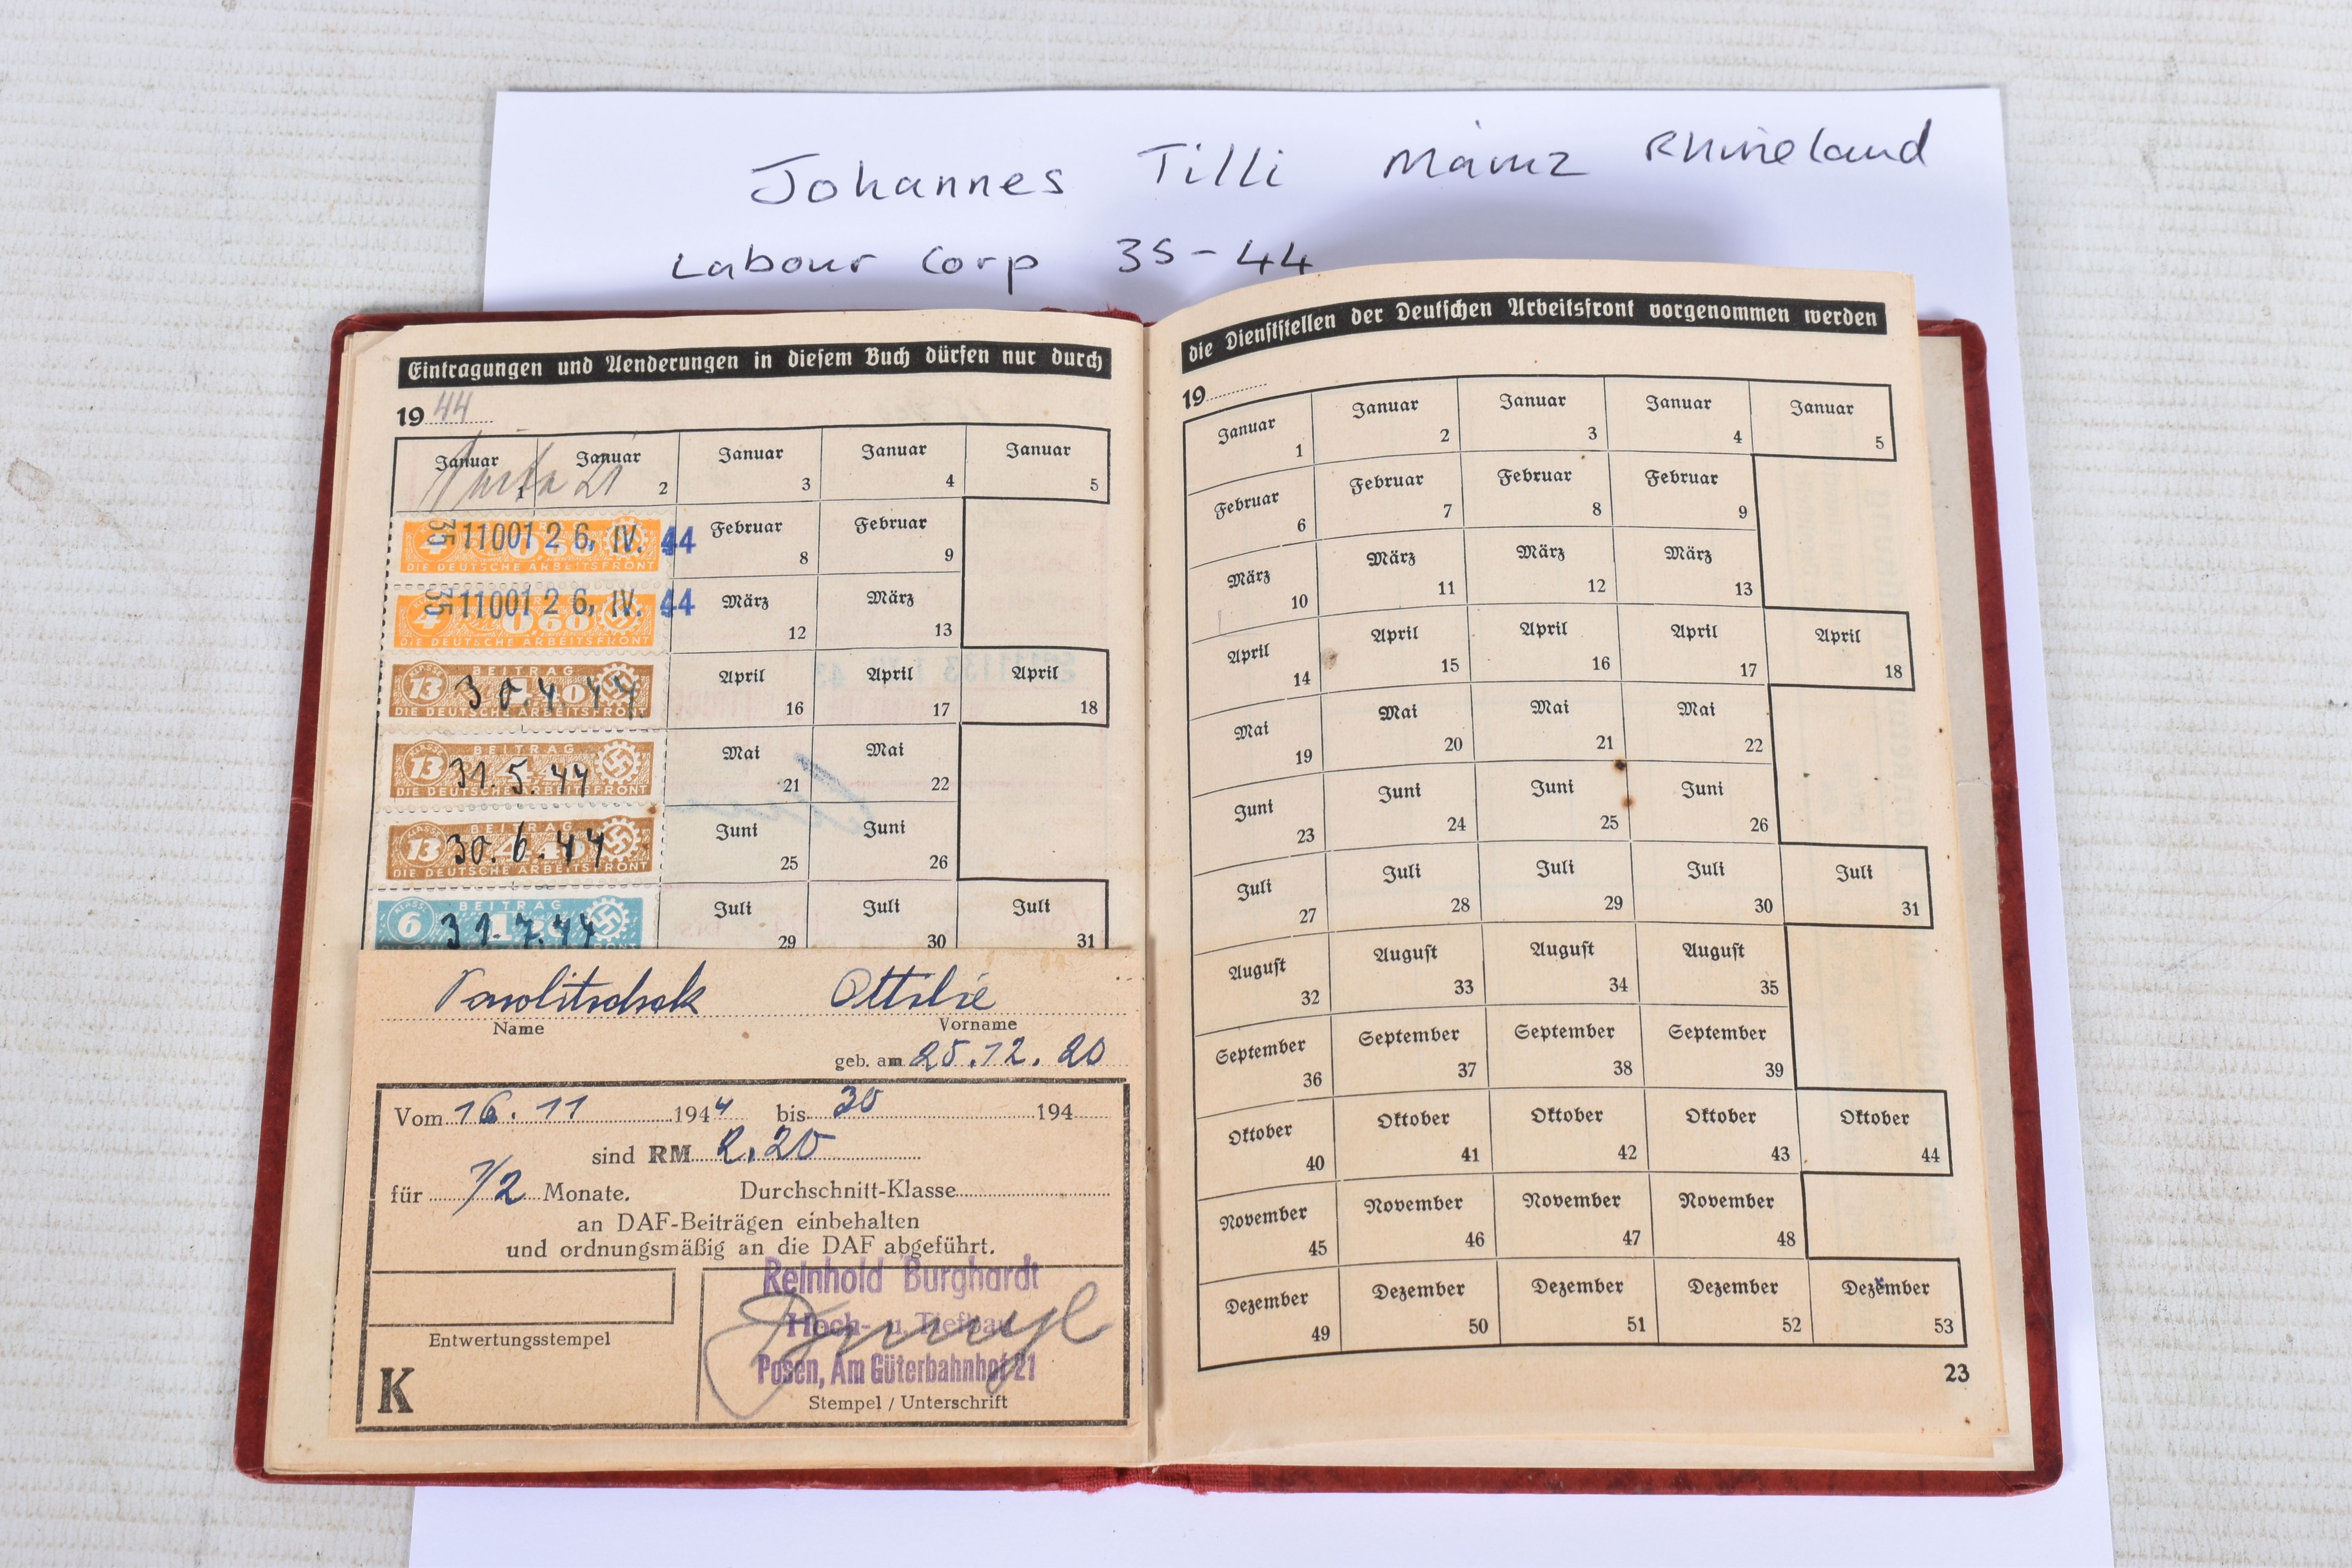 Johannes Tilli Mainz Rhineland
Labour Corp 35-44
Eintragungen und Aenderungen in diesem Buch dürfen nur durch
1944
Januar 1 Januar 2 Januar 3 Januar 4 Januar 5
35 11001 26. IV. 44
4 060
DIE DEUTSCHE ARBEITSFRONT
Februar 8 Februar 9
35 11001 26. IV. 44
4 060
DIE DEUTSCHE ARBEITSFRONT
März 12 März 13
KLASSE 13 BEITRAG 4.40
30.4.44
DIE DEUTSCHE ARBEITSFRONT
April 16 April 17 April 18
KLASSE 13 BEITRAG
31.5.44
DIE DEUTSCHE ARBEITSFRONT
Mai 21 Mai 22
KLASSE 13 BEITRAG
30.6.44
DIE DEUTSCHE ARBEITSFRONT
Juni 25 Juni 26
KLASSE 6 BEITRAG
31.7.44
Juli 29 Juli 30 Juli 31
Ottilie
Name Vorname
geb. am 25.12.20
Vom 16.11 1944 bis 30 194
sind RM 2,20
für 1/2 Monate. Durchschnitt-Klasse
an DAF-Beiträgen einbehalten
und ordnungsmäßig an die DAF abgeführt.
Reinhold Burghardt
Hoch- u. Tiefbau
Posen, Am Güterbahnhof 21
Entwertungsstempel
K
Stempel / Unterschrift
die Dienststellen der Deutschen Arbeitsfront vorgenommen werden
19
Januar 1 Januar 2 Januar 3 Januar 4 Januar 5
Februar 6 Februar 7 Februar 8 Februar 9
März 10 März 11 März 12 März 13
April 14 April 15 April 16 April 17 April 18
Mai 19 Mai 20 Mai 21 Mai 22
Juni 23 Juni 24 Juni 25 Juni 26
Juli 27 Juli 28 Juli 29 Juli 30 Juli 31
August 32 August 33 August 34 August 35
September 36 September 37 September 38 September 39
Oktober 40 Oktober 41 Oktober 42 Oktober 43 Oktober 44
November 45 November 46 November 47 November 48
Dezember 49 Dezember 50 Dezember 51 Dezember 52 Dezember 53
23